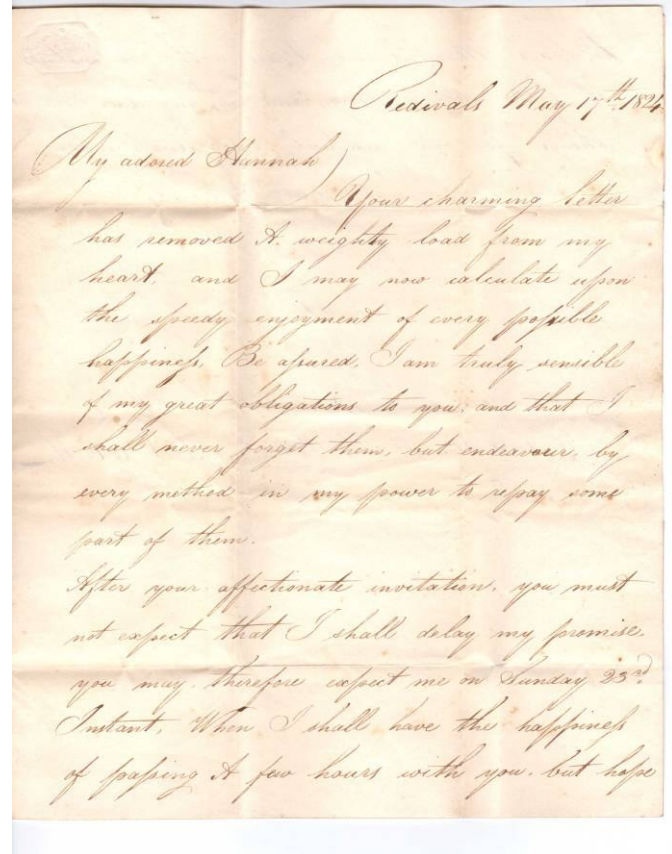 Redivals May 17th 1824
My adored Hannah)
Your charming letter
has removed A. weighty load from my
heart, and I may now calculate upon
the speedy enjoyment of every possible
happiness. Be assured, I am truly sensible
of my great obligations to you; and that I
shall never forget them, but endeavour, by
every method in my power to repay some
part of them.
After your affectionate invitation, you must
not expect that I shall delay my promise.
you may, therefore expect me on Sunday 23rd
Instant, When I shall have the happiness
of passing A few hours with you. but hope